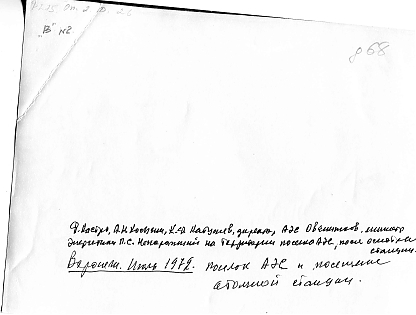 "В" н2
р 68
Ф. Кастро, А.Н. Косыгин, К.Ф. директор АЭС Овчинников, министр
энергетики П.С. Непорожний на территории поселка АЭС, после осмотра
станции.
Воронеж. Июль 1972. поселок АЭС и посещение
атомной станции.